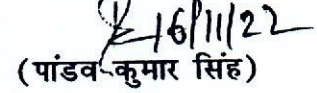 16/11/22
(पांडव कुमार सिंह)